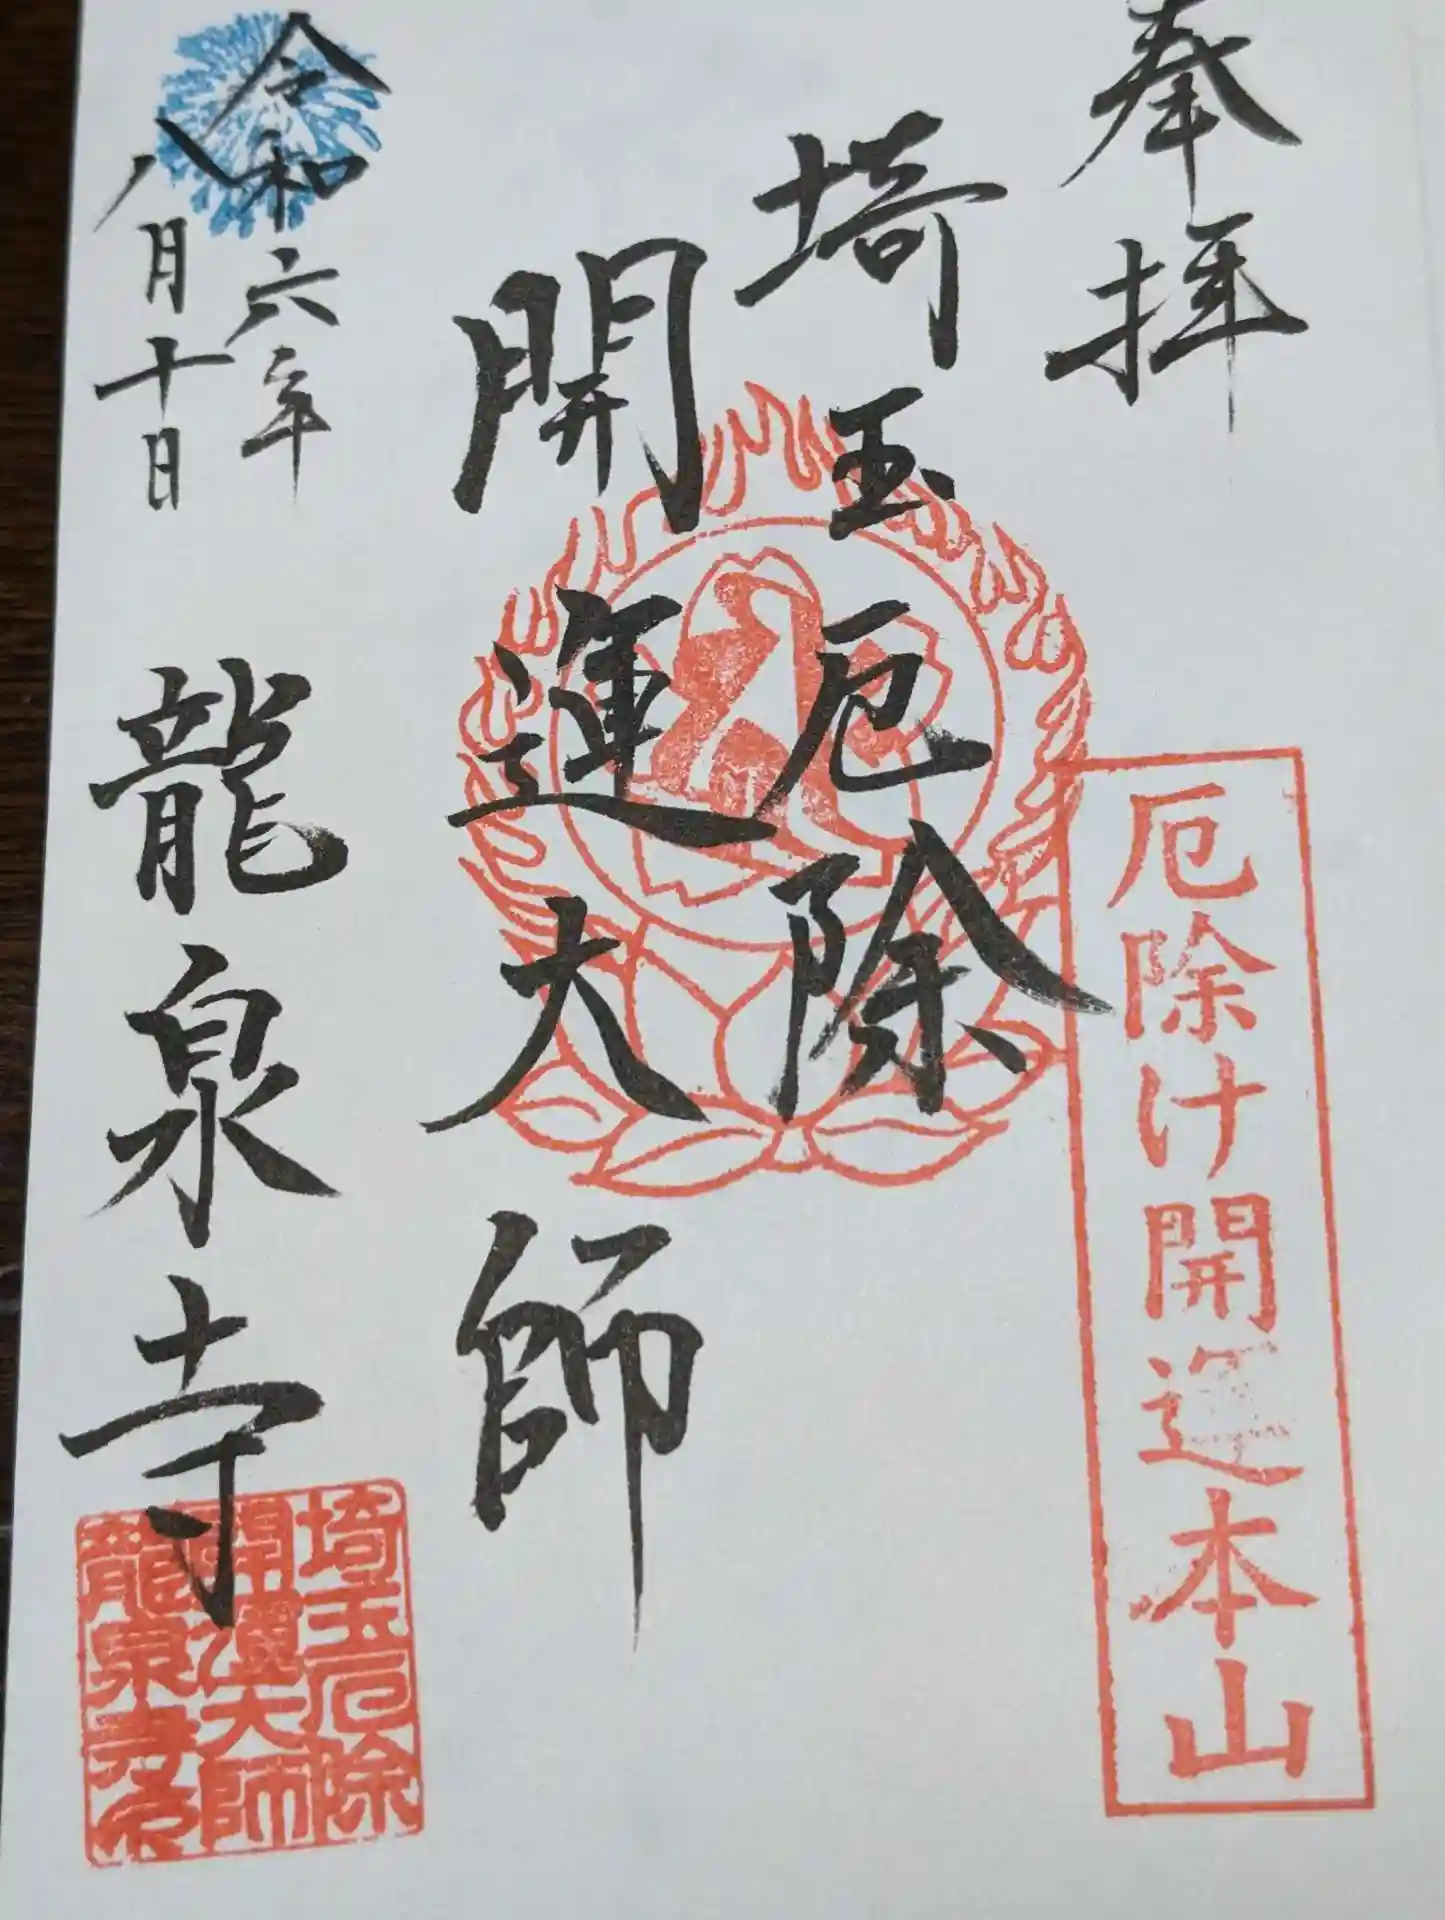 奉拝
厄除け開運本山
埼玉厄除
開運大師
令和六年
八月十日
龍泉寺
埼玉厄除
開運大師
龍泉寺印